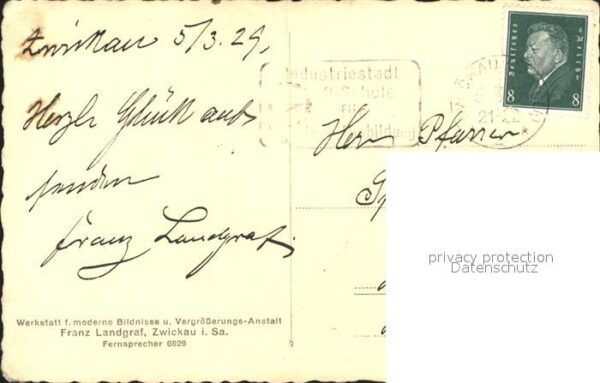 Zwickau 5/3.29,
Herzl. Glück auf
senden
Franz Landgraf.
Werkstatt f. moderne Bildnisse u. Vergrößerungs-Anstalt
Franz Landgraf, Zwickau i. Sa.
Fernsprecher 6029
Industriestadt
Deutsches Reich
8 8
21-22
Herrn Pfarrer
privacy protection
Datenschutz